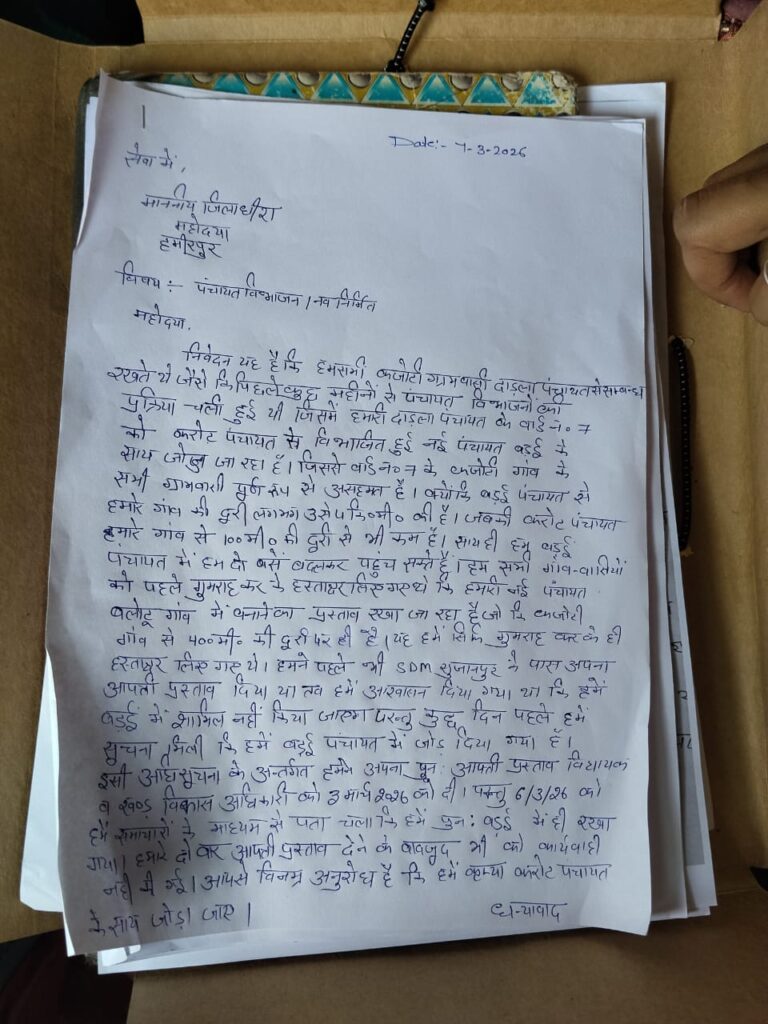 Date:- 7-3-2026
सेवा में,
माननीय जिलाधीश
महोदया
हमीरपुर
विषय :- पंचायत विभाजन / नव निर्मित
महोदया,
निवेदन यह है कि हम सभी कजोटी ग्रामवासी दाड़ला पंचायत से सम्बन्ध
रखते थे जैसे कि पिछले कुछ महीनों से पंचायत विभाजनों की
प्रक्रिया चली हुई थी जिसमें हमारी दाड़ला पंचायत के वार्ड न० 7
को करोट पंचायत से विभाजित हुई नई पंचायत बड़ई के
साथ जोड़ा जा रहा है। जिससे वार्ड न० 7 के कजोटी गांव के
सभी ग्रामवासी पूर्ण रूप से असहमत है। क्योंकि बड़ई पंचायत से
हमारे गांव की दुरी लगभग 3 से 4 कि०मी० की है। जबकी करोट पंचायत
हमारे गांव से 100 मी० की दुरी से भी कम है। साथ ही हम बड़ई
पंचायत में हम दो बसें बदलकर पहुंच सक्ते है। हम सभी गांव-वासियों
को पहले गुमराह कर के हस्ताक्षर लिए गए थे कि हमारी नई पंचायत
बलोटू गांव में बनाने का प्रस्ताव रखा जा रहा है जो कि कजोटी
गांव से 400 मी० की दुरी पर ही है। यह हमें सिर्फ गुमराह कर के ही
हस्ताक्षर लिए गए थे। हमने पहले भी SDM सुजानपुर के पास अपना
आपती प्रस्ताव दिया था तब हमें आश्वासन दिया गया था कि हमें
बड़ई में शामिल नहीं किया जाएगा परन्तु कुछ दिन पहले हमें
सुचना मिली कि हमें बड़ई पंचायत में जोड़ दिया गया है।
इसी अधिसूचना के अन्तर्गत हमने अपना पुन: आपती प्रस्ताव विधायक
व खण्ड विकास अधिकारी को 3 मार्च 2026 को दी। परन्तु 6/3/26 को
हमें समाचारों के माध्यम से पता चला कि हमें पुन: बड़ई में ही रखा
गया। हमारे दो बार आपती प्रस्ताव देने के बावजुद भी को कार्यवाही
नही की गई। आपसे विनम्र अनुरोध है कि हमें कृप्या करोट पंचायत
के साथ जोड़ा जाए।
धन्यावाद